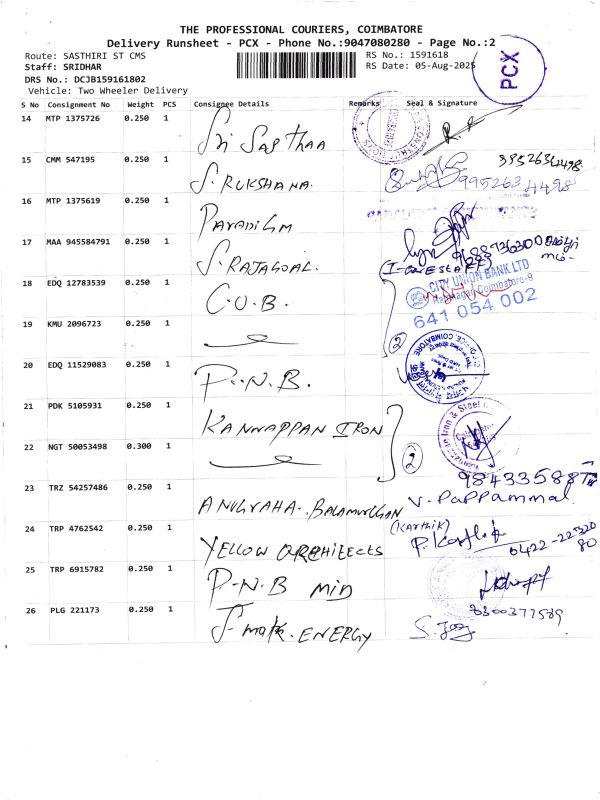 THE PROFESSIONAL COURIERS, COIMBATORE
Delivery Runsheet - PCX - Phone No.:9047080280 - Page No.:2
Route: SASTHIRI ST CMS
RS No.: 1591618
Staff: SRIDHAR
RS Date: 05-Aug-2025
DRS No.: DCJB159161802
Vehicle: Two Wheeler Delivery
PCX
S No Consignment No Weight PCS Consignee Details Remarks Seal & Signature
14 MTP 1375726 0.250 1 Sri Sasthaa
15 CMM 547195 0.250 1 S. RUKSHANA. 9952634498
9952634498
16 MTP 1375619 0.250 1 Paradigm
17 MAA 945584791 0.250 1 S. RAJAGOAL.
18 EDQ 12783539 0.250 1 C.U.B. CITY UNION BANK LTD
Coimbatore-9
641 054 002
19 KMU 2096723 0.250 1 2
20 EDQ 11529083 0.250 1 P.N.B.
21 PDK 5105931 0.250 1 KANNAPPAN IRON
22 NGT 50053498 0.300 1 2
23 TRZ 54257486 0.250 1 ANUGRAHA. BALAMURUGAN V. Pappammal
24 TRP 4762542 0.250 1 YELLOW ARCHITECTS (Karthik)
0422-22320
80
25 TRP 6915782 0.250 1 P.N.B MID
26 PLG 221173 0.250 1 ENERGY 8300377589